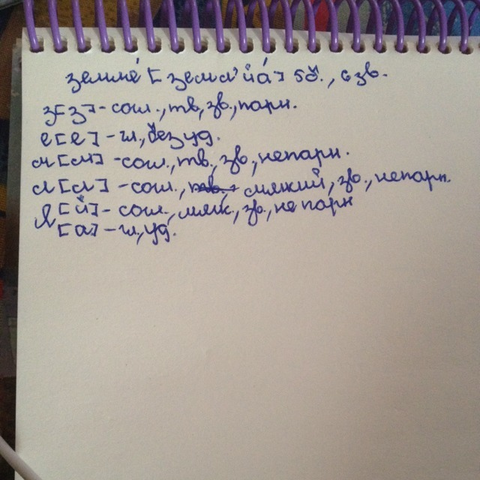 земля́ [земл'йа́] 5б., 6 зв.
з[з] - согл., тв, зв., парн.
е[е] - гл, безуд.
м[м] - согл., тв., зв, непарн.
л[л] - согл., тв., мягкий, зв., непарн.
я [й] - согл., мягк, зв., не парн
[а] - гл, уд.